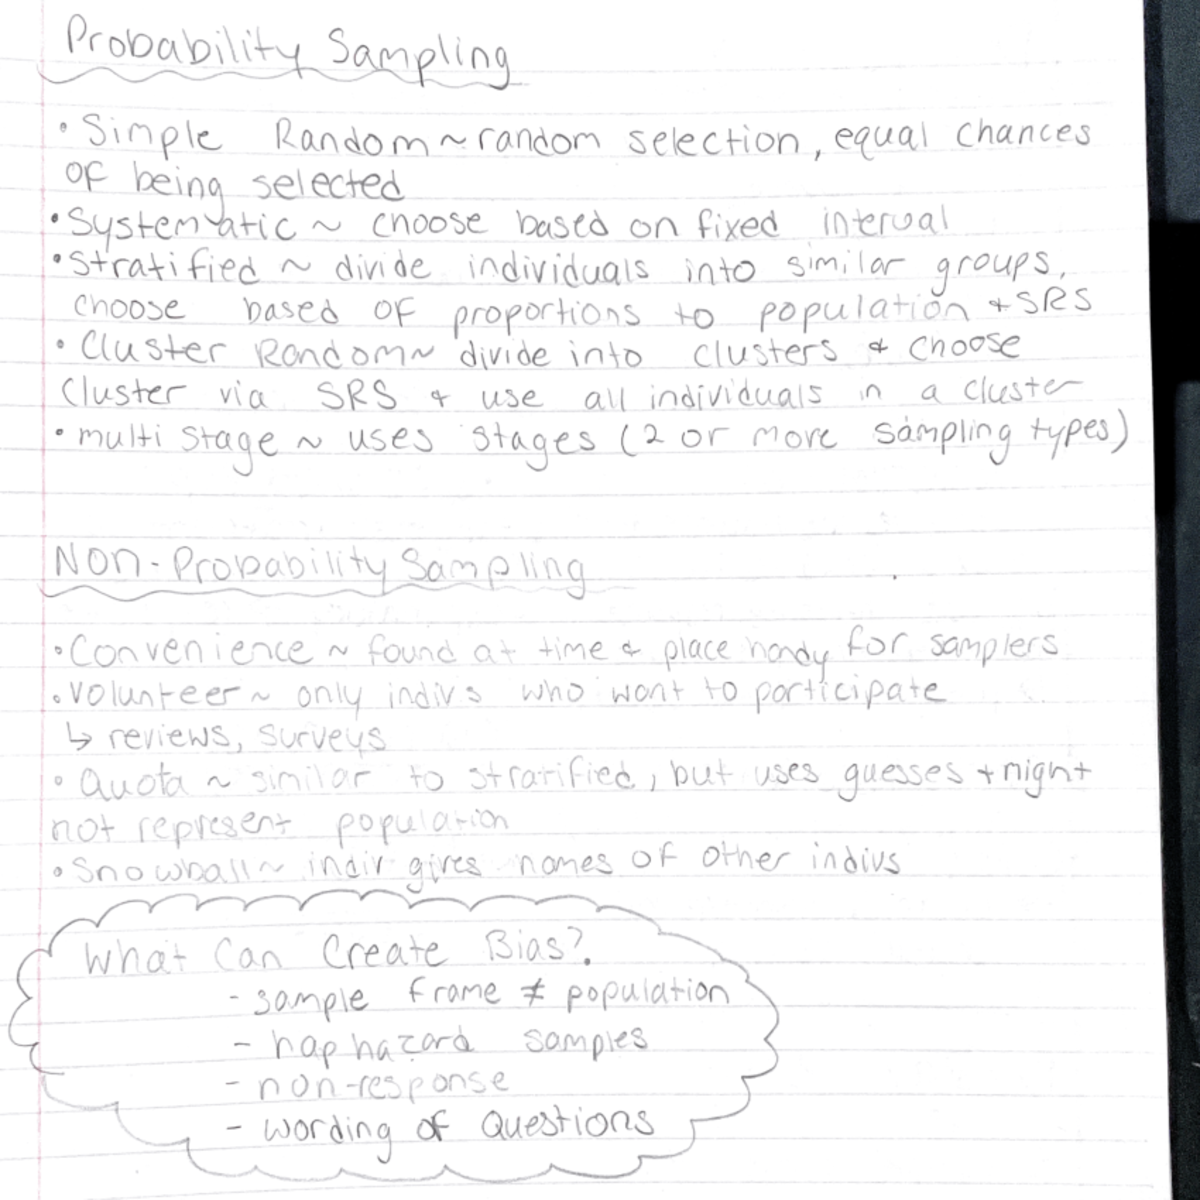 Probability Sampling
• Simple Random ~ random selection, equal chances
of being selected
• Systematic ~ choose based on fixed interval
• Stratified ~ divide individuals into similar groups,
choose based of proportions to population + SRS
• Cluster Random ~ divide into clusters & choose
cluster via SRS & use all individuals in a cluster
• multi stage ~ uses stages (2 or more sampling types)
Non-Probability Sampling
• Convenience ~ found at time & place handy for samplers
• Volunteer ~ only indivs who want to participate
↳ reviews, surveys
• Quota ~ similar to stratified, but uses guesses + might
not represent population
• Snowball ~ indiv gives names of other indivs
What Can Create Bias?
- sample frame ≠ population
- haphazard samples
- non-response
- wording of Questions